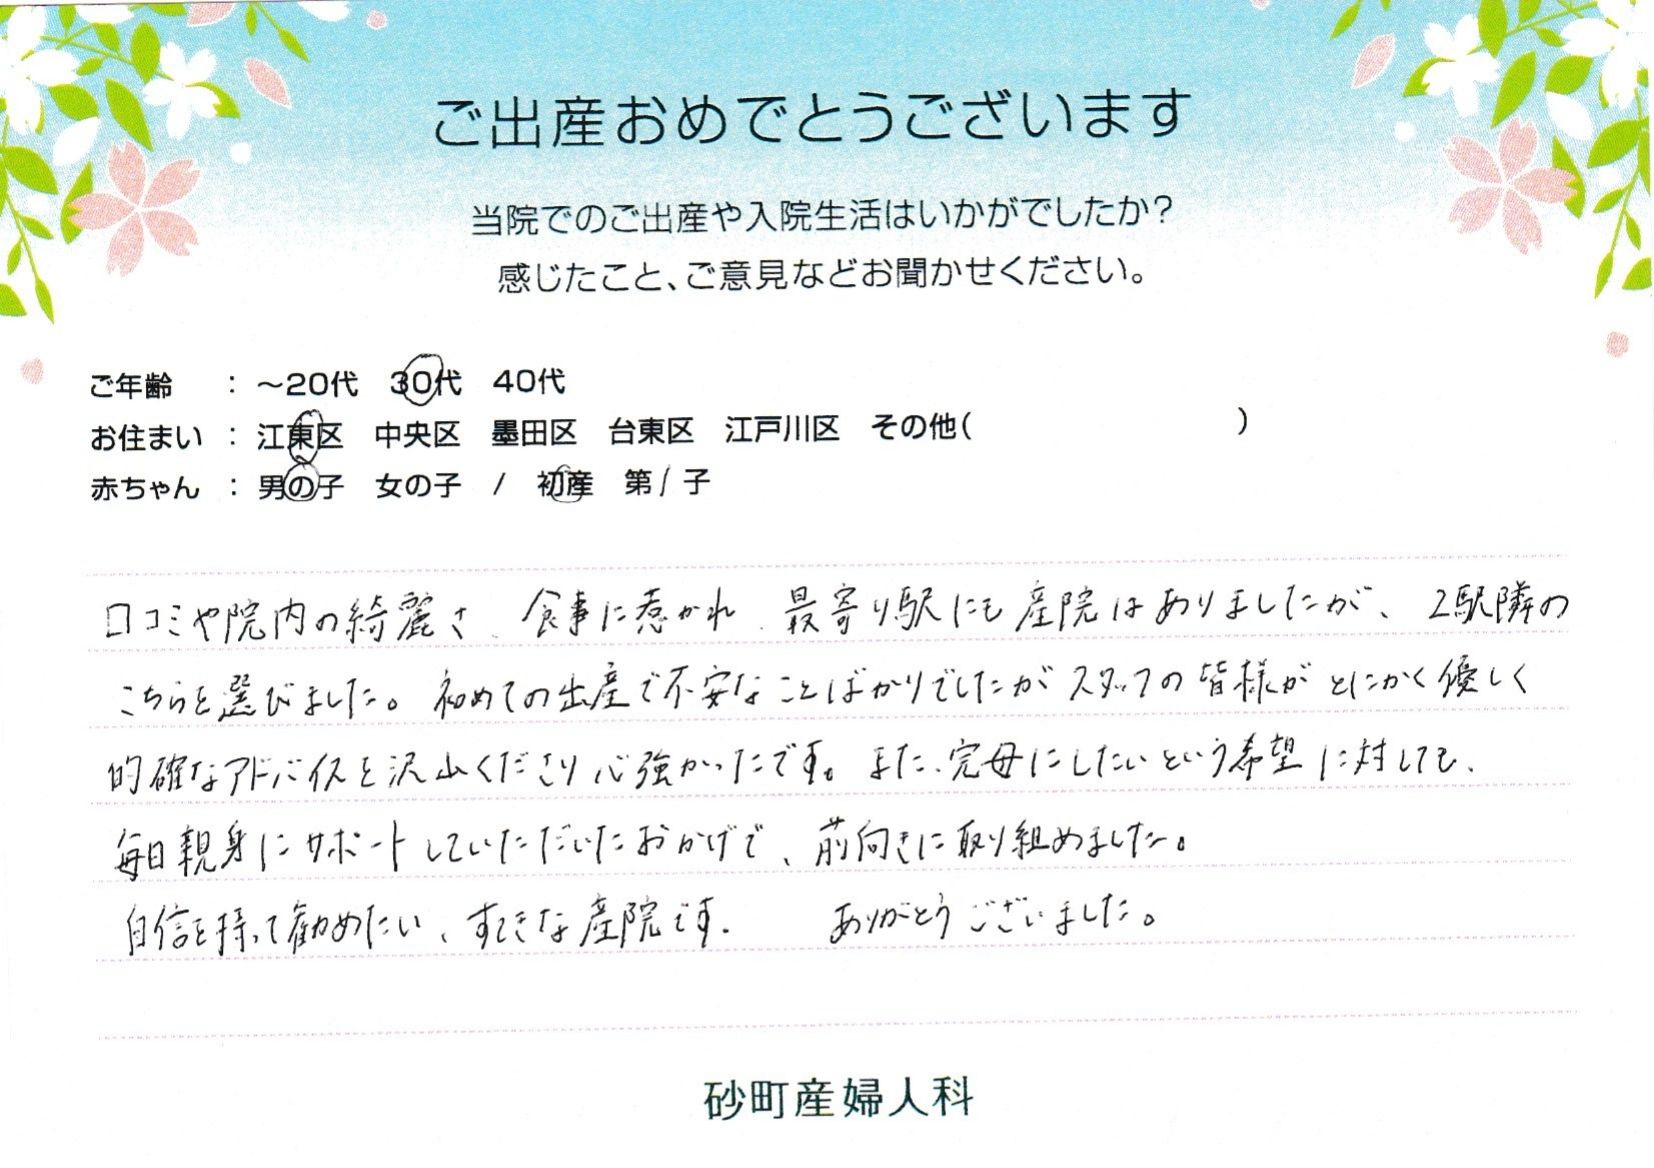 ご出産おめでとうございます
当院でのご出産や入院生活はいかがでしたか?
感じたこと、ご意見などお聞かせください。
ご年齢 : ～20代 30代 40代
お住まい : 江東区 中央区 墨田区 台東区 江戸川区 その他( )
赤ちゃん : 男の子 女の子 / 初産 第1子
口コミや院内の綺麗さ、食事に惹かれ、最寄り駅にも産院はありましたが、2駅隣の
こちらを選びました。初めての出産で不安なことばかりでしたがスタッフの皆様がとにかく優しく
的確なアドバイスを沢山くださり心強かったです。また、完母にしたいという希望に対しても、
毎日親身にサポートしていただいたおかげで、前向きに取り組めました。
自信を持って勧めたい、すてきな産院です. ありがとうございました。
砂町産婦人科